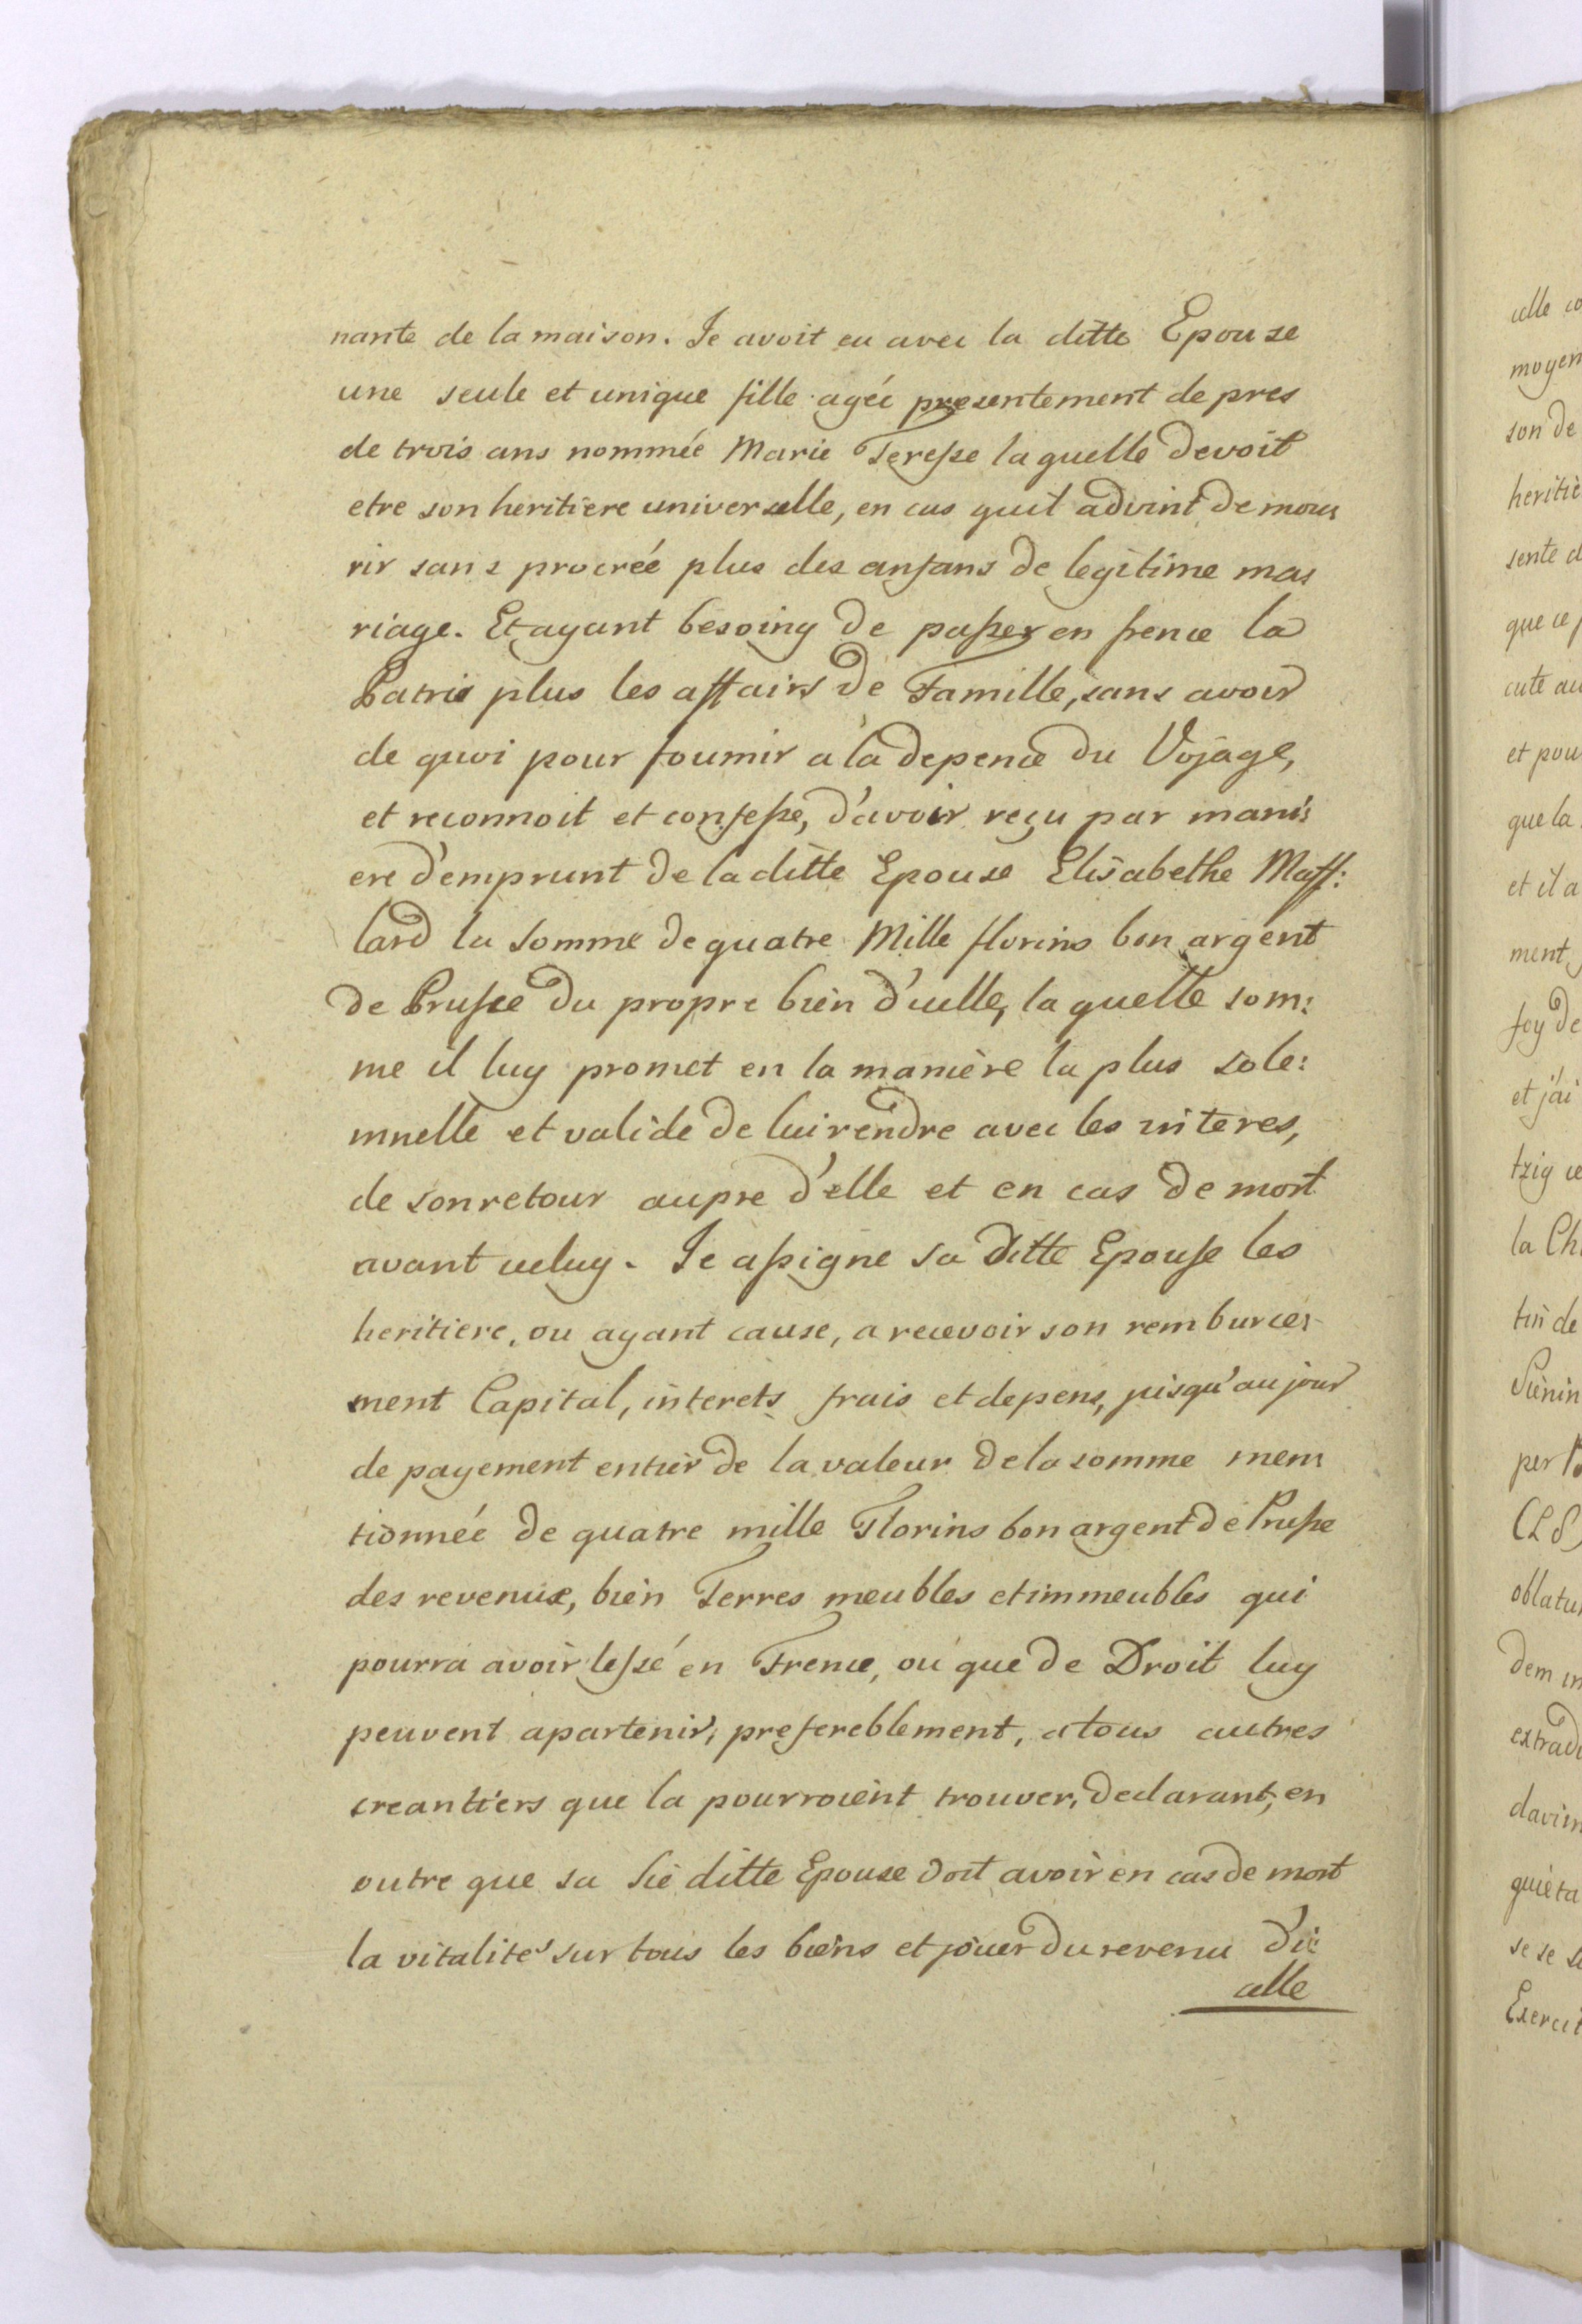 nante de la maison. Je avoit eu avec la ditte Epouse
une seule et unique fille agée presentement de pres
de trois ans nommée Marie Teresse laquelle devoit
etre son heritiere universelle, en cas quil advint de mou:
rir sans procreé plus des anfans de legitime ma:
riage. Et ayant besoing de passer en frence la
Patrie plus les affairs de Famille, sans avoir
de quoi pour fournir a la depence du Vojage,
et reconnoit et confesse, d'avoir reçu par mani:
ere d'emprunt de la ditte Epouse Elisabethe Maff:
lard la somme de quatre Mille florins bon argent
de Prusse du propre bien d'icelle, la quelle som:
me il luy promet en la manière la plus sole:
mnelle et valide de lui rendre avec les interes,
de son retour aupre d'elle et en cas de mort
avant celuy. Je assigne sa ditte Epouse les
heritiere, ou ayant cause, a recevoir son remburce:
ment Capital, interets frais et depens, jusqu'au jour
de payement entier de la valeur de la somme men:
tionnée de quatre mille Florins bon argent de Prusse
des revenue, bien Terres meubles et immeubles qui
pourra avoir lessé en Frence, ou que de Droit luy
peuvent apartenir, prefereblement, a tous autres
creantiers que la pourroient trouver, declarant, en
outre que sa sie ditte Epouse doit avoir en cas de mort
la vitalité sur tous les biens et jouer du revenu d'i
celle
celle co
moyen
son de
heritie
sente d
que ce
cute au
et pou
que la
et il a
ment
foy de
et j'ai
tzig ce
la Ch
tin de
per
(LS)
oblatu
dem in
extrad
davim
quieta
se se
Exercit